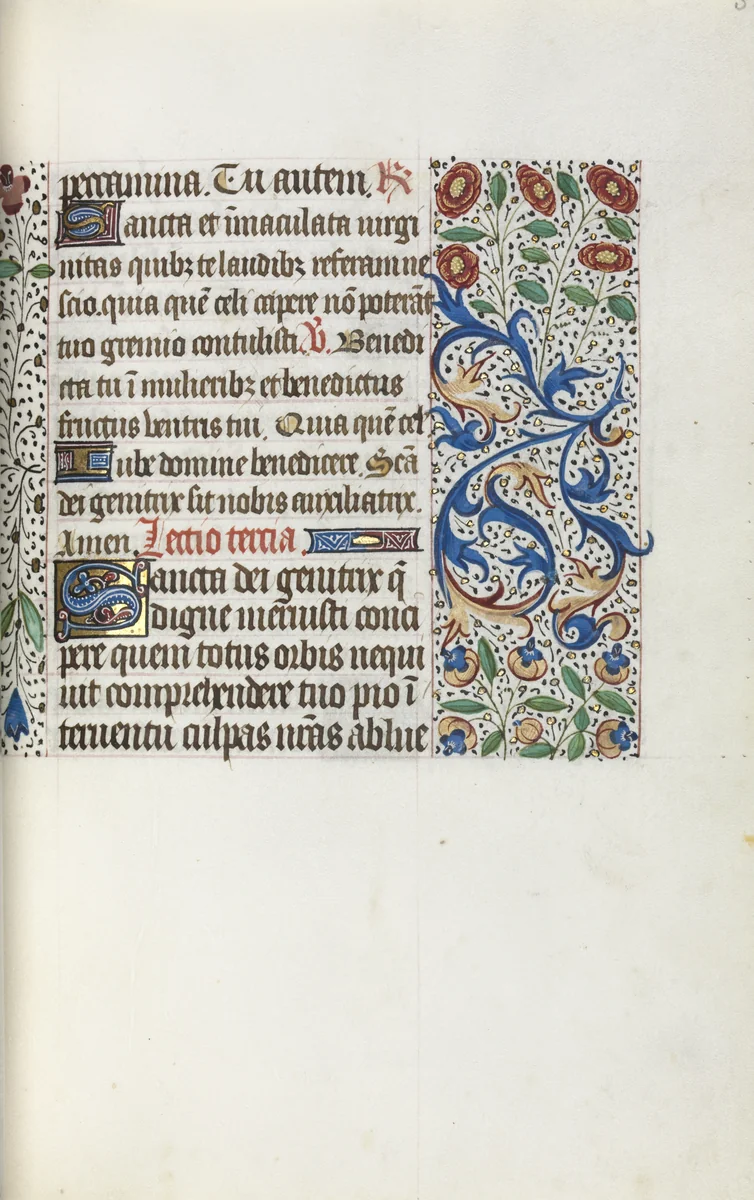 peccamina. Tu autem. R
Sancta et īmaculata uirgi
nitas quibꝫ te laudibꝫ referam ne
scio. quia quē celi capere nō poterāt
tuo gremio contulisti. V. Benedi
cta tu ī mulieribꝫ et benedictus
fructus ventris tui. Quia quē cel'
Iube domine benedicere. Scā
dei genitrix sit nobis auxiliatrix.
Amen. Lectio tercia.
Sancta dei genitrix q̄
digne meruisti conci
pere quem totus orbis nequi
uit comprehendere tuo pio ī
teruentu culpas nr̄as ablue